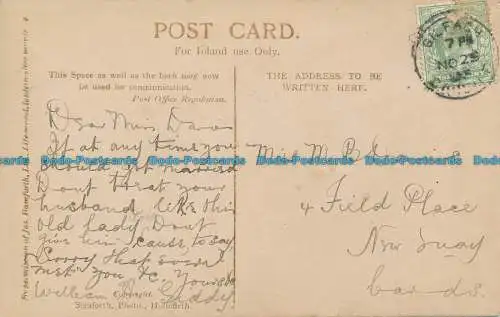 POST CARD.
For Inland use Only.
This Space as well as the back may now
be used for communication.
Post Office Regulation.
THE ADDRESS TO BE
WRITTEN HERE.
7 PM
NO 25
Dear Miss Davies
If at any time you
should get married
Dont treat your
husband like this
old lady Dont
give him cause to say
Sorry that ever I
met you &c. Yours
William
Copyright.
Bamforth, Photo., Holmfirth.
Miss M. B.
4 Field Place
New Quay
Cards.
Dodo-Postcards Dodo-Postcards Dodo-Postcards Dodo-Postcards Dodo-Postcards